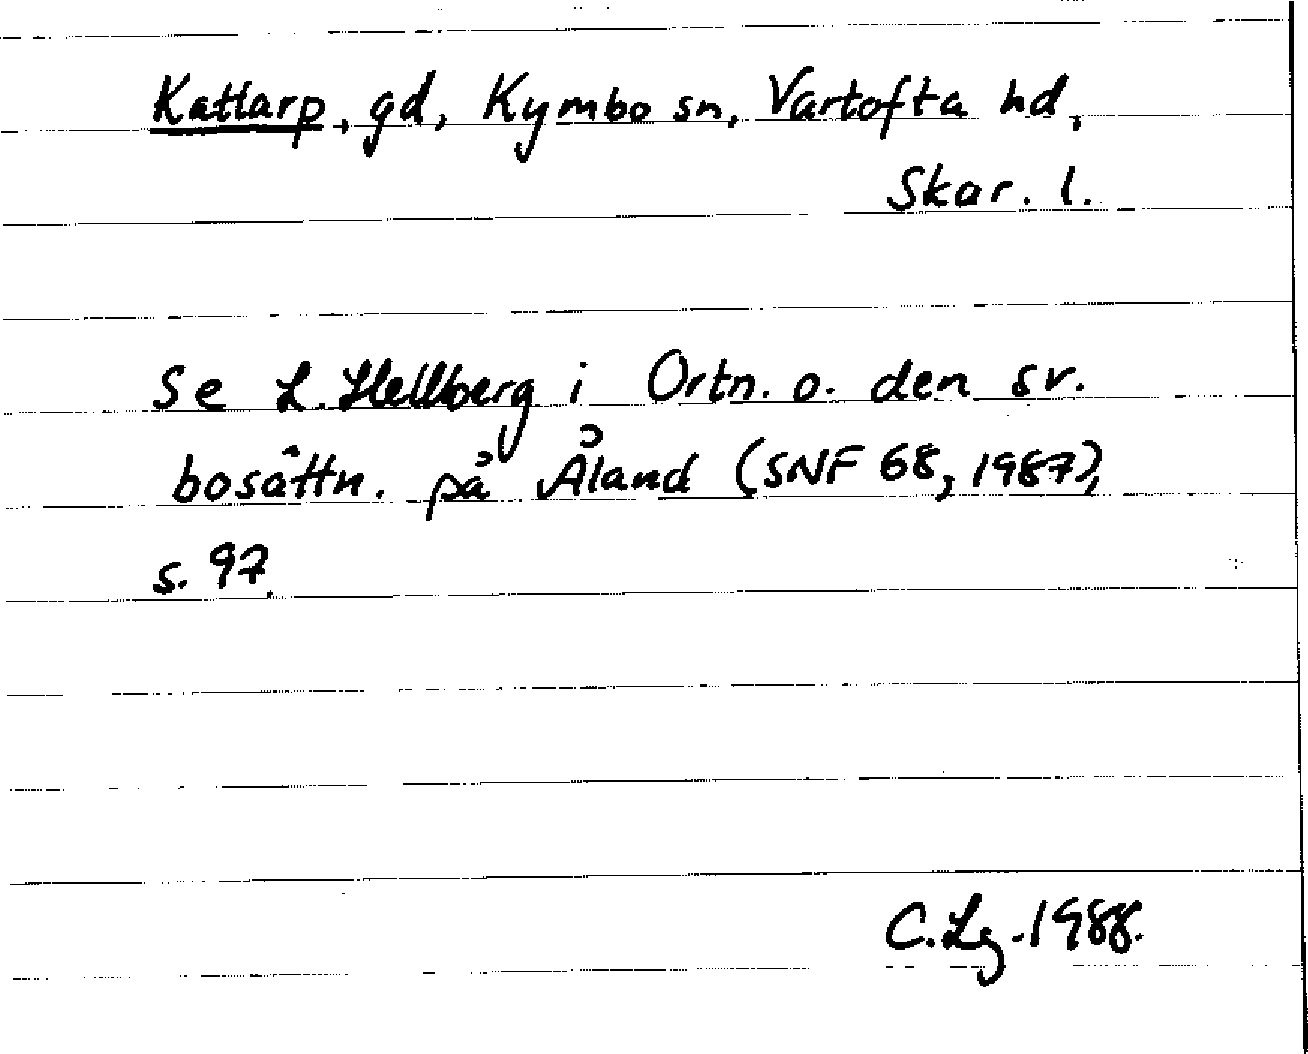 Kattarp, gd, Kymbo sn, Vartofta hd,
Skar. l.
Se L. Hellberg i Ortn. o. den sv.
bosättn. på Åland (SNF 68, 1987),
s. 97.
C. Lg. 1988.